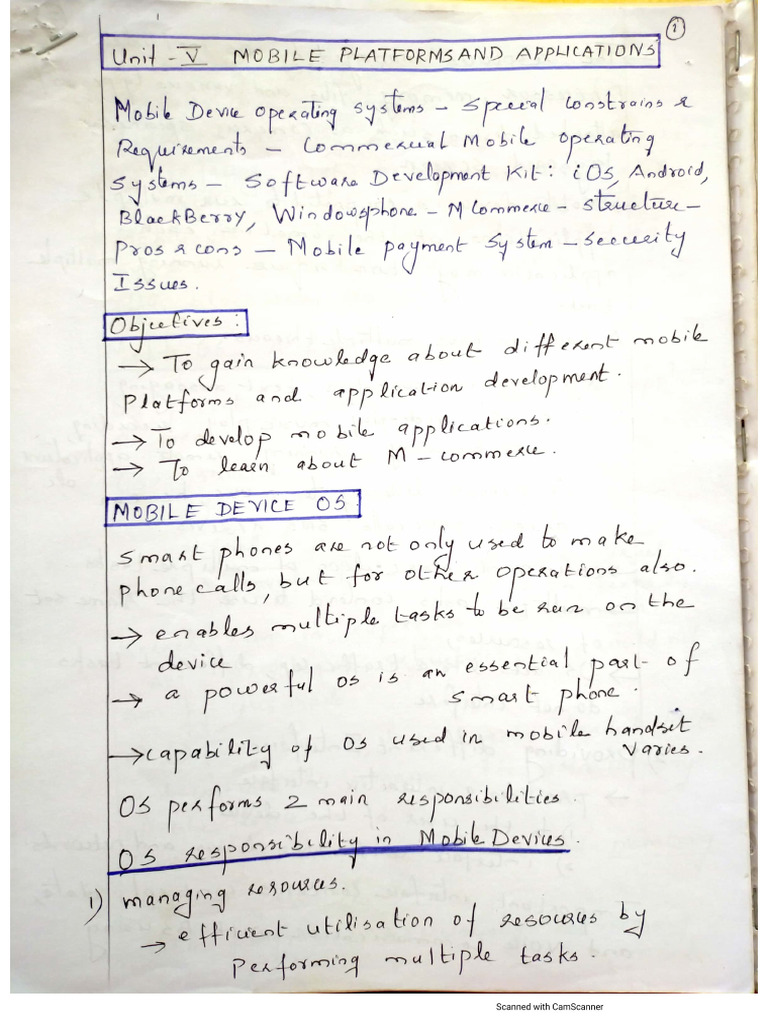 1
Unit - V MOBILE PLATFORMS AND APPLICATIONS
Mobile Device operating systems - Special constrains &
Requirements - Commercial Mobile operating
Systems - Software Development Kit: iOS, Android,
BlackBerry, Windowsphone - M Commerce - structure -
Pros & cons - Mobile payment System - Security
Issues.
Objectives:
→ To gain knowledge about different mobile
Platforms and application development.
→ To develop mobile applications.
→ To learn about M-commerce.
MOBILE DEVICE OS
Smart phones are not only used to make
phone calls, but for other operations also.
→ enables multiple tasks to be run on the
device
→ a powerful os is an essential part of
smart phone.
→ capability of OS used in mobile handset
varies.
OS performs 2 main responsibilities.
OS responsibility in Mobile Devices.
1) managing resources.
→ efficient utilisation of resources by
Performing multiple tasks.
Scanned with CamScanner